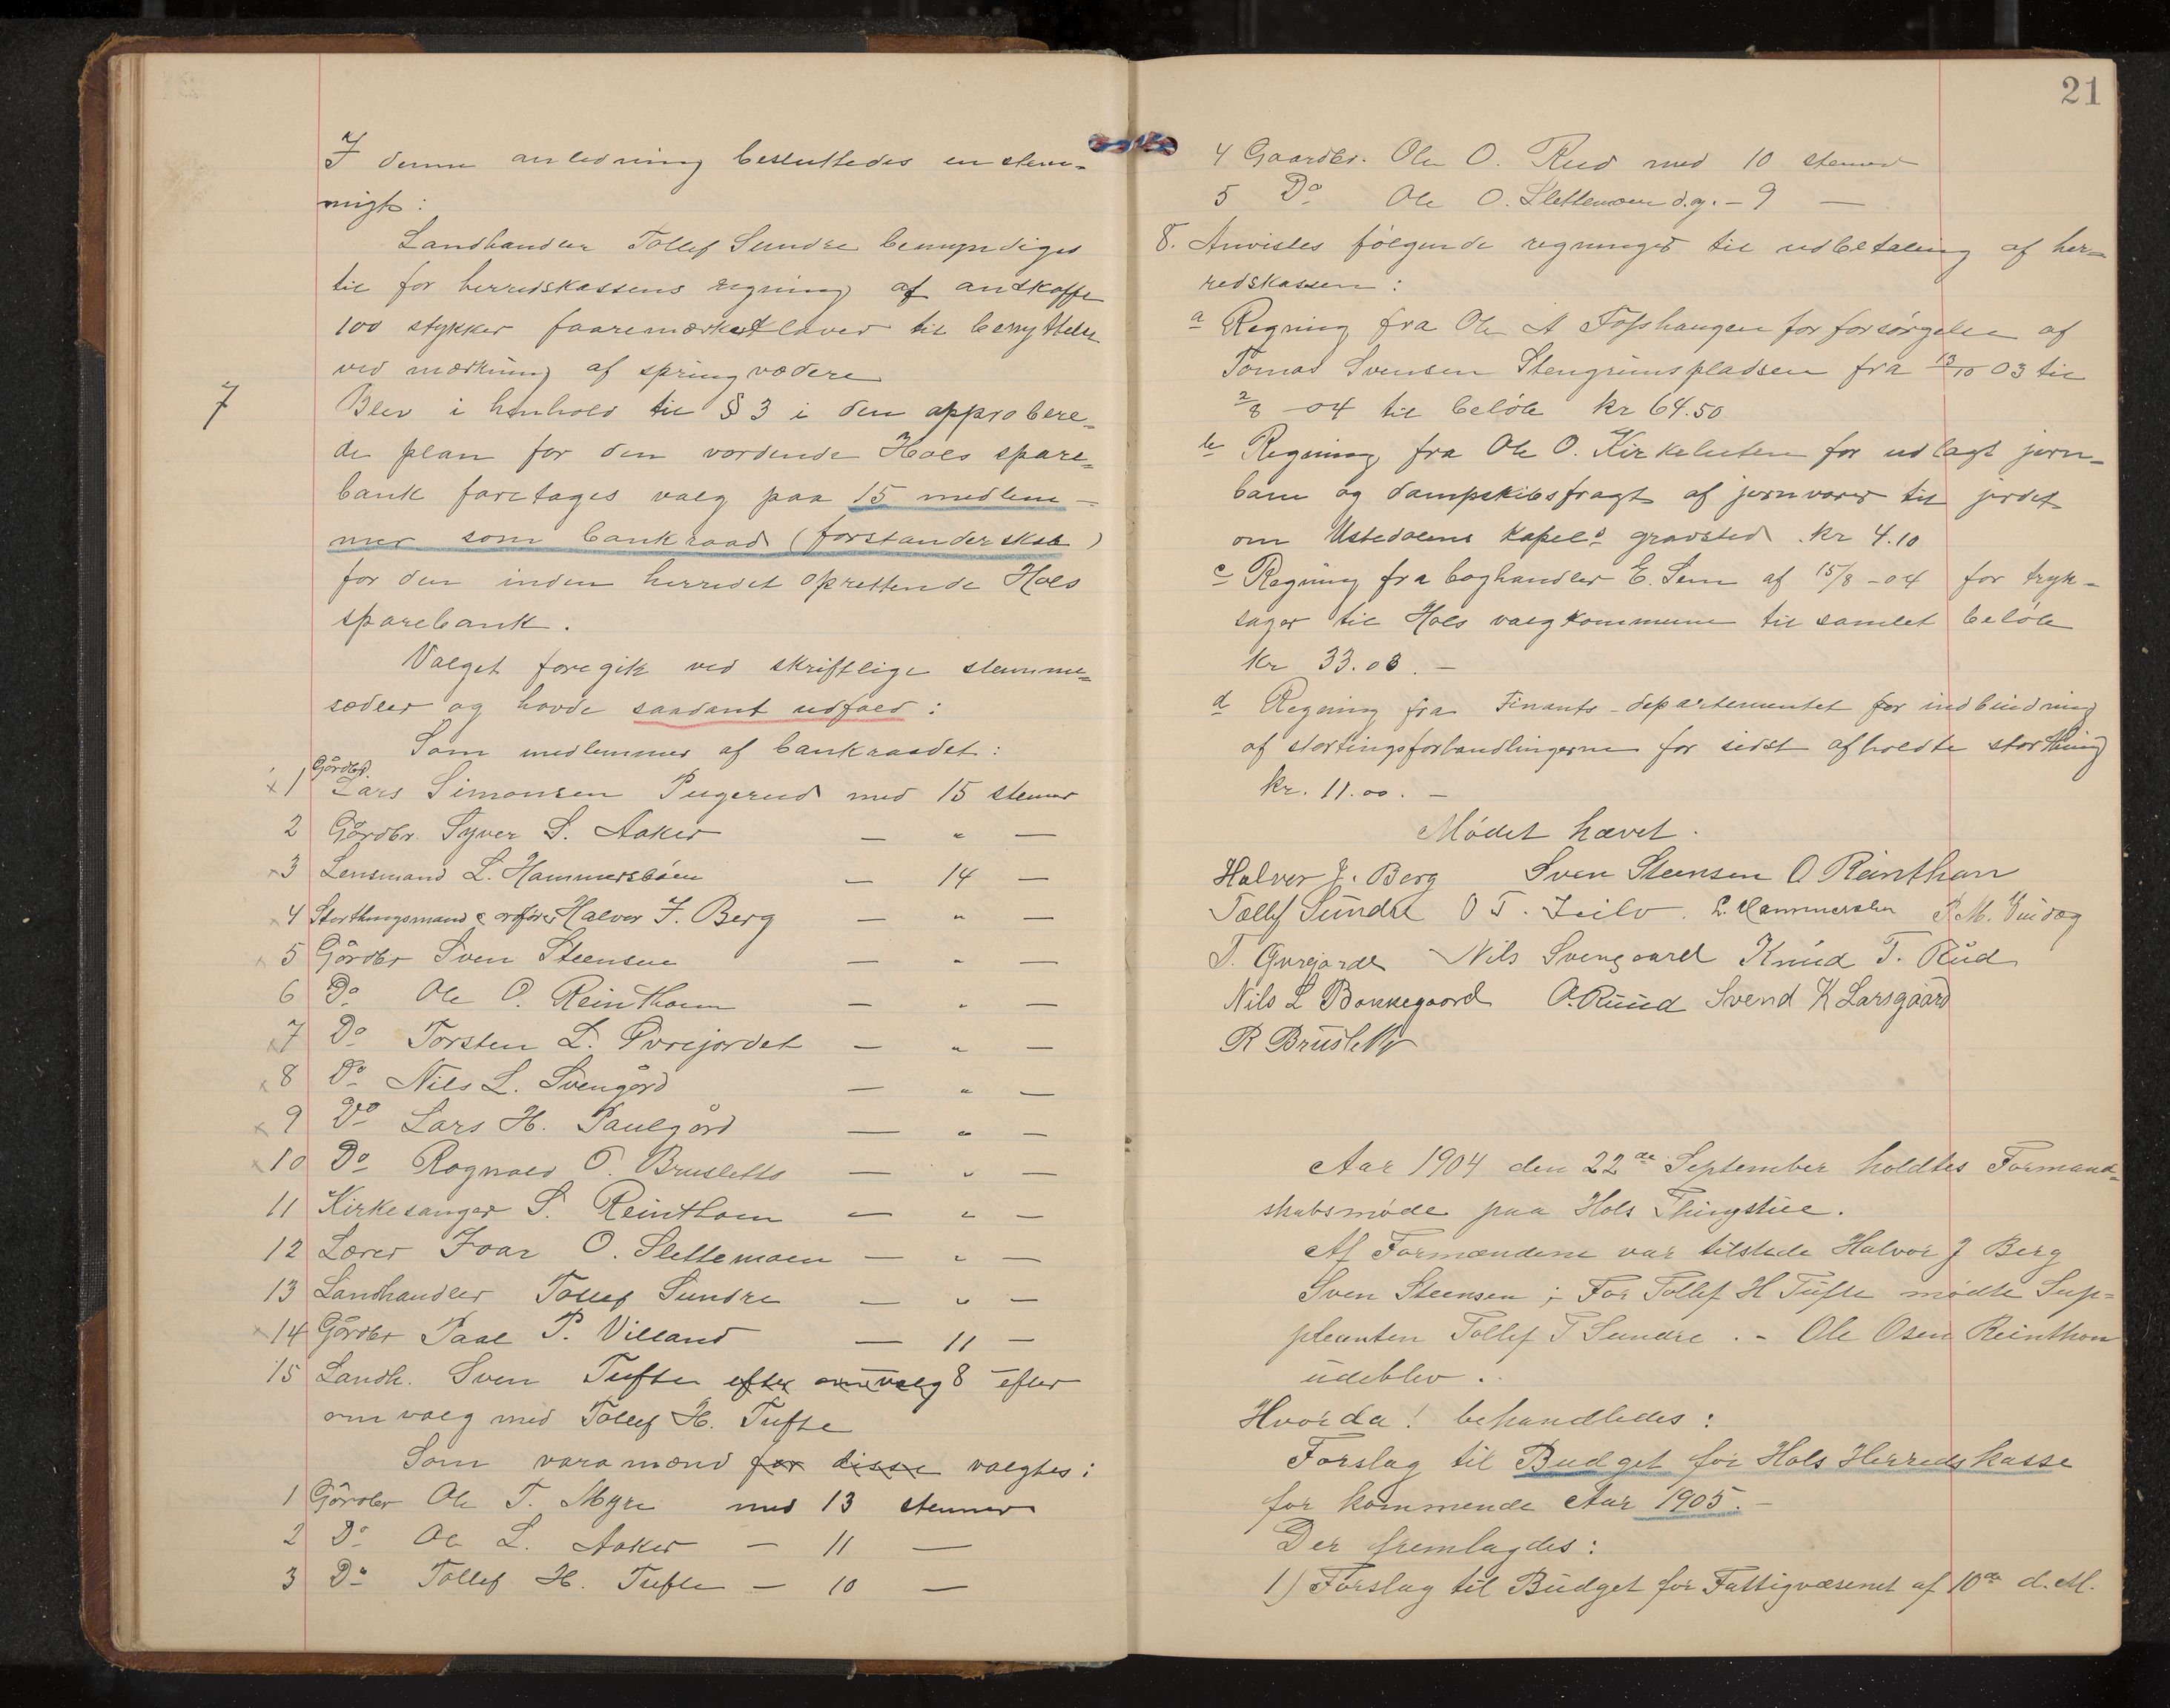 I denne anledning besluttedes enstem-
migt:
Landhandler Tollef Sundre bemyndiges
til for herredskassens regning af anskaffe
100 stykker faaremærke til benyttelse
ved mærkning af springvædere
7 Blev i henhold til § 3 i den approbere-
de plan for den vordende Hols spare-
bank foretages valg paa 15 medlem-
mer som bankraad (forstanderskab)
for den inden herredet oprettende Hols
sparebank.
Valget foregik ved skriftlige stemme-
sedler og havde saadant udfald:
Som medlemmer af bankraadet:
1 Gårdbr. Lars Simonsen Pugerud med 15 stemer
2 Gårdbr. Syver S. Aaker — " —
3 Lensmand L. Hammersbøen — 14 —
4 Storthingsmand & ordfører Halvor J. Berg — " —
5 Gårdbr Sven Steensen — " —
6 Do Ole O. Reinthon — " —
7 Do Torsten L. Øvrejordet — " —
8 Do Nils L. Svengård — " —
9 Do Lars H. Paulgård — " —
10 Do Ragnald O. Brusletto — " —
11 Kirkesanger S. Reinthon — " —
12 Lærer Ivar O. Slettemoen — " —
13 Landhandler Tollef Sundre — " —
14 Gårdbr Paal P. Villand — 11 —
15 Landh. Sven Tufte efter omvalg 8 efter
omvalg med Tollef H. Tufte
Som varamænd for disse valgtes:
1 Gårdbr Ole T. Myre med 13 stemmer
2 Do Ole L. Aaker — 11 —
3 Do Tollef H. Tufte — 10 —
21
4 Gaardbr. Ole O. Rud med 10 stemer
5 Do Ole O. Slettemoen d.y. - 9 —
8. Anvistes følgende regninger til udbetaling af her-
redskassen:
a Regning fra Ole A Fosshaugen for forsørgelse af
Tomas Svensen Stengrimspladsen fra 13/10 03 til
2/8 -04 til beløb kr 64.50
b Regning fra Ole O. Kirkebuten for udlagt jern-
bane og dampskibsfragt af jernvarer til jordet
om Ustedalens kapels gravsted. kr 4.10
c Regning fra boghandler E. Sem af 15/8 -04 for tryk-
sager til Hols valgkommune til samlet beløb
kr 33.03. —
d Regning fra Finants-departementet for indbinding
af stortingsforhandlingerne for sidst afholdte storthing
kr. 11.00. —
Mødet hævet.
Halvor J. Berg Sven Steensen O Reinthon
Tollef Sundre O T. L. Hammersbøn P. M.
T. Øvrejorde Nils Svengaard Knud T. Rud
Nils L Bakkegaard O. Ruud Svend K Larsgaard
R Brusletto
Aar 1904 den 22de September holdtes Formand-
skabsmøde paa Hols Thingstue.
Af Formændene var tilstede Halvor J Berg
Sven Steensen; For Tollef H Tufte mødte Sup-
pleanten Tollef T Sundre. - Ole Osen Reinthon
udeblev.
Hvorda! behandledes:
Forslag til Budget for Hols Herredskasse
for kommende Aar 1905. —
Der fremlagdes:
1) Forslag til Budget for Fattigvæsenet af 10de d. M.